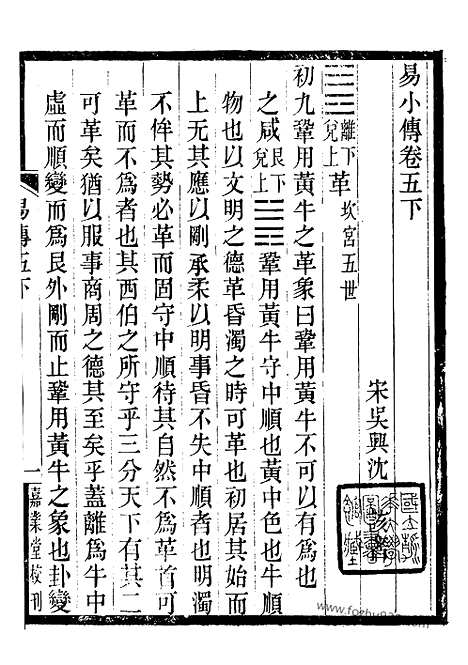 易小傳卷五下
宋吳興沈該譔
離下兌上革坎宮五世
初九鞏用黃牛之革象曰鞏用黃牛不可以有爲也
之咸艮下兌上鞏用黃牛守中順也黃中色也牛順
物也以文明之德革昏濁之時可革也初居其始而
上无其應以剛承柔以明事昏不失中順者也明濁
不侔其勢必革而固守中順待其自然不爲革首可
革而不爲者也其西伯之所守乎三分天下有其二
可革矣猶以服事商周之德其至矣乎蓋離爲牛中
虛而順變而爲艮外剛而止鞏用黃牛之象也卦變
易傳五下
一
嘉業堂校刊